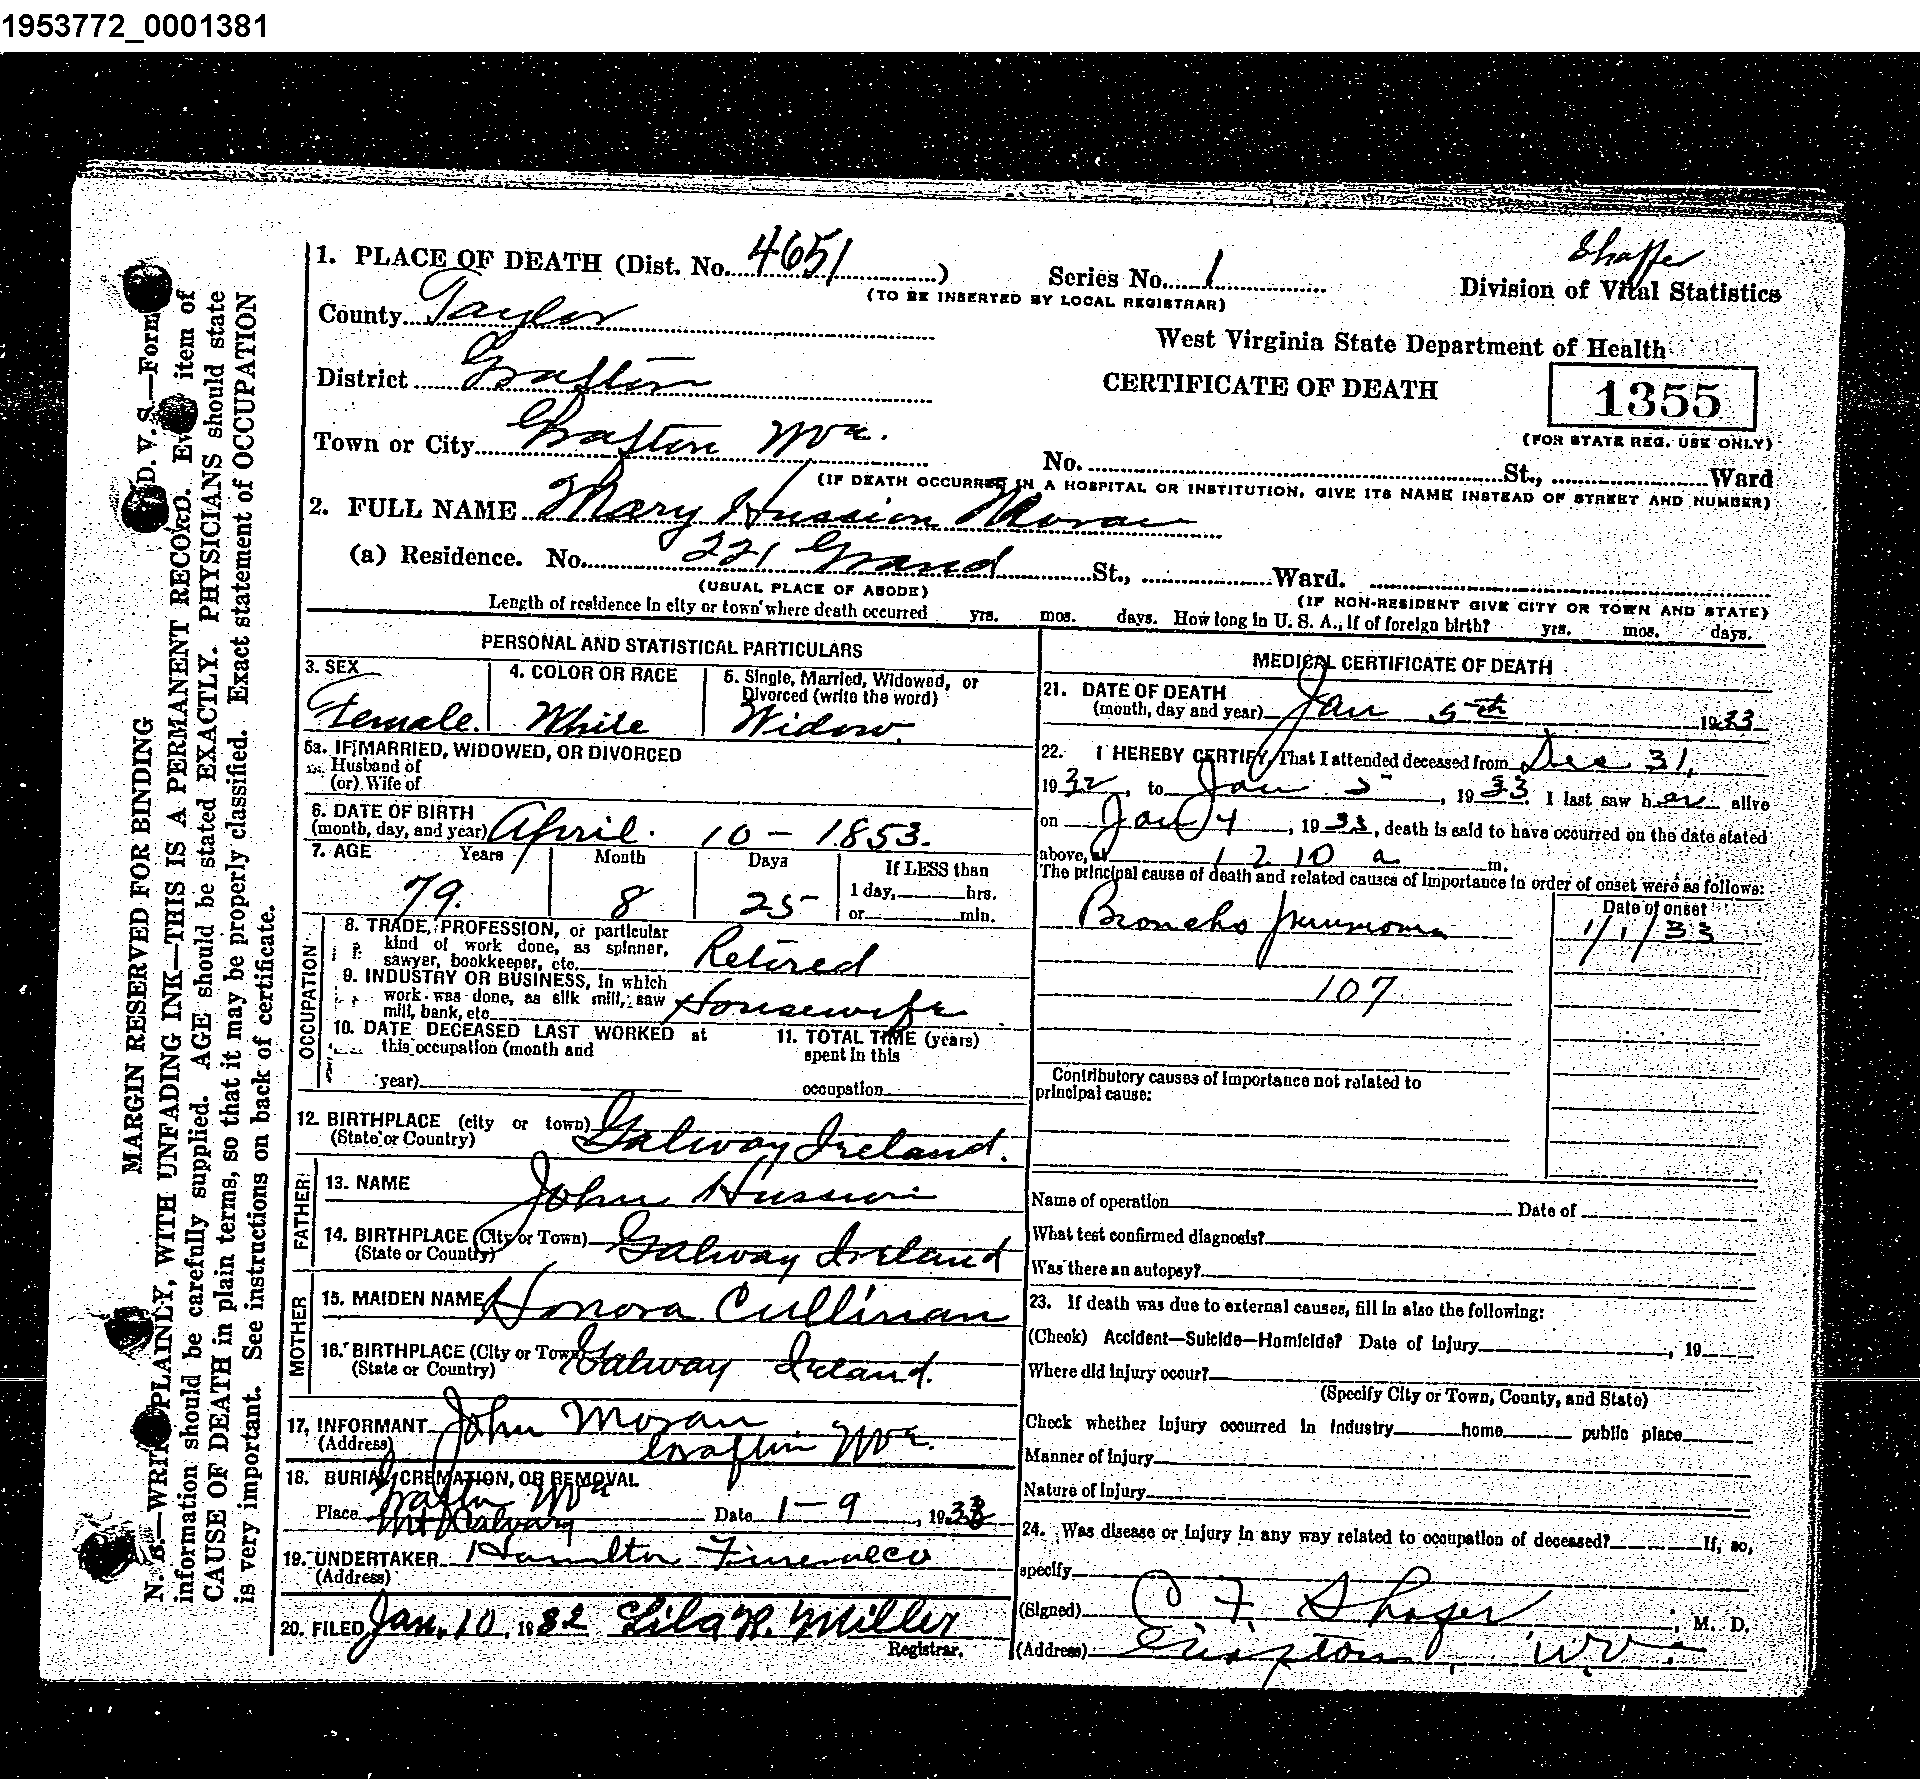 1953772_0001381
Shaffer
1. PLACE OF DEATH (Dist. No. 4651 )
Series No. 1
(TO BE INSERTED BY LOCAL REGISTRAR)
Division of Vital Statistics
County Taylor
West Virginia State Department of Health
District Grafton
CERTIFICATE OF DEATH
1355
(FOR STATE REG. USE ONLY)
Town or City Grafton Wva.
No. St., Ward
(IF DEATH OCCURRED IN A HOSPITAL OR INSTITUTION, GIVE ITS NAME INSTEAD OF STREET AND NUMBER)
2. FULL NAME Mary Hussion Moran
(a) Residence. No. 221 Grand St., Ward.
(USUAL PLACE OF ABODE)
(IF NON-RESIDENT GIVE CITY OR TOWN AND STATE)
Length of residence in city or town where death occurred yrs. mos. days. How long in U. S. A., if of foreign birth? yrs. mos. days.
PERSONAL AND STATISTICAL PARTICULARS
3. SEX
Female.
4. COLOR OR RACE
White
5. Single, Married, Widowed, or
Divorced (write the word)
Widow.
5a. IF MARRIED, WIDOWED, OR DIVORCED
Husband of
(or) Wife of
6. DATE OF BIRTH
(month, day, and year) April. 10 - 1853.
7. AGE Years Month Days If LESS than
79. 8 25 1 day, hrs.
or min.
OCCUPATION
8. TRADE, PROFESSION, or particular
kind of work done, as spinner,
sawyer, bookkeeper, etc. Retired
9. INDUSTRY OR BUSINESS, in which
work was done, as silk mill, saw
mill, bank, etc. Housewife
10. DATE DECEASED LAST WORKED at
this occupation (month and
year)
11. TOTAL TIME (years)
spent in this
occupation
12. BIRTHPLACE (city or town)
(State or Country) Galway Ireland.
FATHER
13. NAME John Hussion
14. BIRTHPLACE (City or Town)
(State or County) Galway Ireland
MOTHER
15. MAIDEN NAME Honora Cullinan
16. BIRTHPLACE (City or Town
(State or Country) Galway Ireland.
17. INFORMANT John Moran
(Address) Grafton Wva.
18. BURIAL, CREMATION, OR REMOVAL
Grafton Wva
Place Mt Calvary Date 1-9, 1933
19. UNDERTAKER Hamilton
(Address)
20. FILED Jan. 10, 1932 Lila H. Miller
Registrar.
MEDICAL CERTIFICATE OF DEATH
21. DATE OF DEATH
(month, day and year) Jan 5th 1933
22. I HEREBY CERTIFY, That I attended deceased from Dec 31,
1932, to Jan 5, 1933. I last saw her alive
on Jan 4, 1933, death is said to have occurred on the date stated
above, at 12 10 a m.
The principal cause of death and related causes of importance in order of onset were as follows:
Date of onset
Broncho pneumonia 1/1/33
107
Contributory causes of importance not related to
principal cause:
Name of operation Date of
What test confirmed diagnosis?
Was there an autopsy?
23. If death was due to external causes, fill in also the following:
(Check) Accident—Suicide—Homicide? Date of injury , 19
Where did injury occur?
(Specify City or Town, County, and State)
Check whether injury occurred in industry home public place
Manner of injury
Nature of injury
24. Was disease or injury in any way related to occupation of deceased? If, so,
specify
(Signed) C. F. Shafer, M. D.
(Address) W.V.
MARGIN RESERVED FOR BINDING
D. V. S.—Form
N. B.—WRITE PLAINLY, WITH UNFADING INK—THIS IS A PERMANENT RECORD. Every item of
information should be carefully supplied. AGE should be stated EXACTLY. PHYSICIANS should state
CAUSE OF DEATH in plain terms, so that it may be properly classified. Exact statement of OCCUPATION
is very important. See instructions on back of certificate.